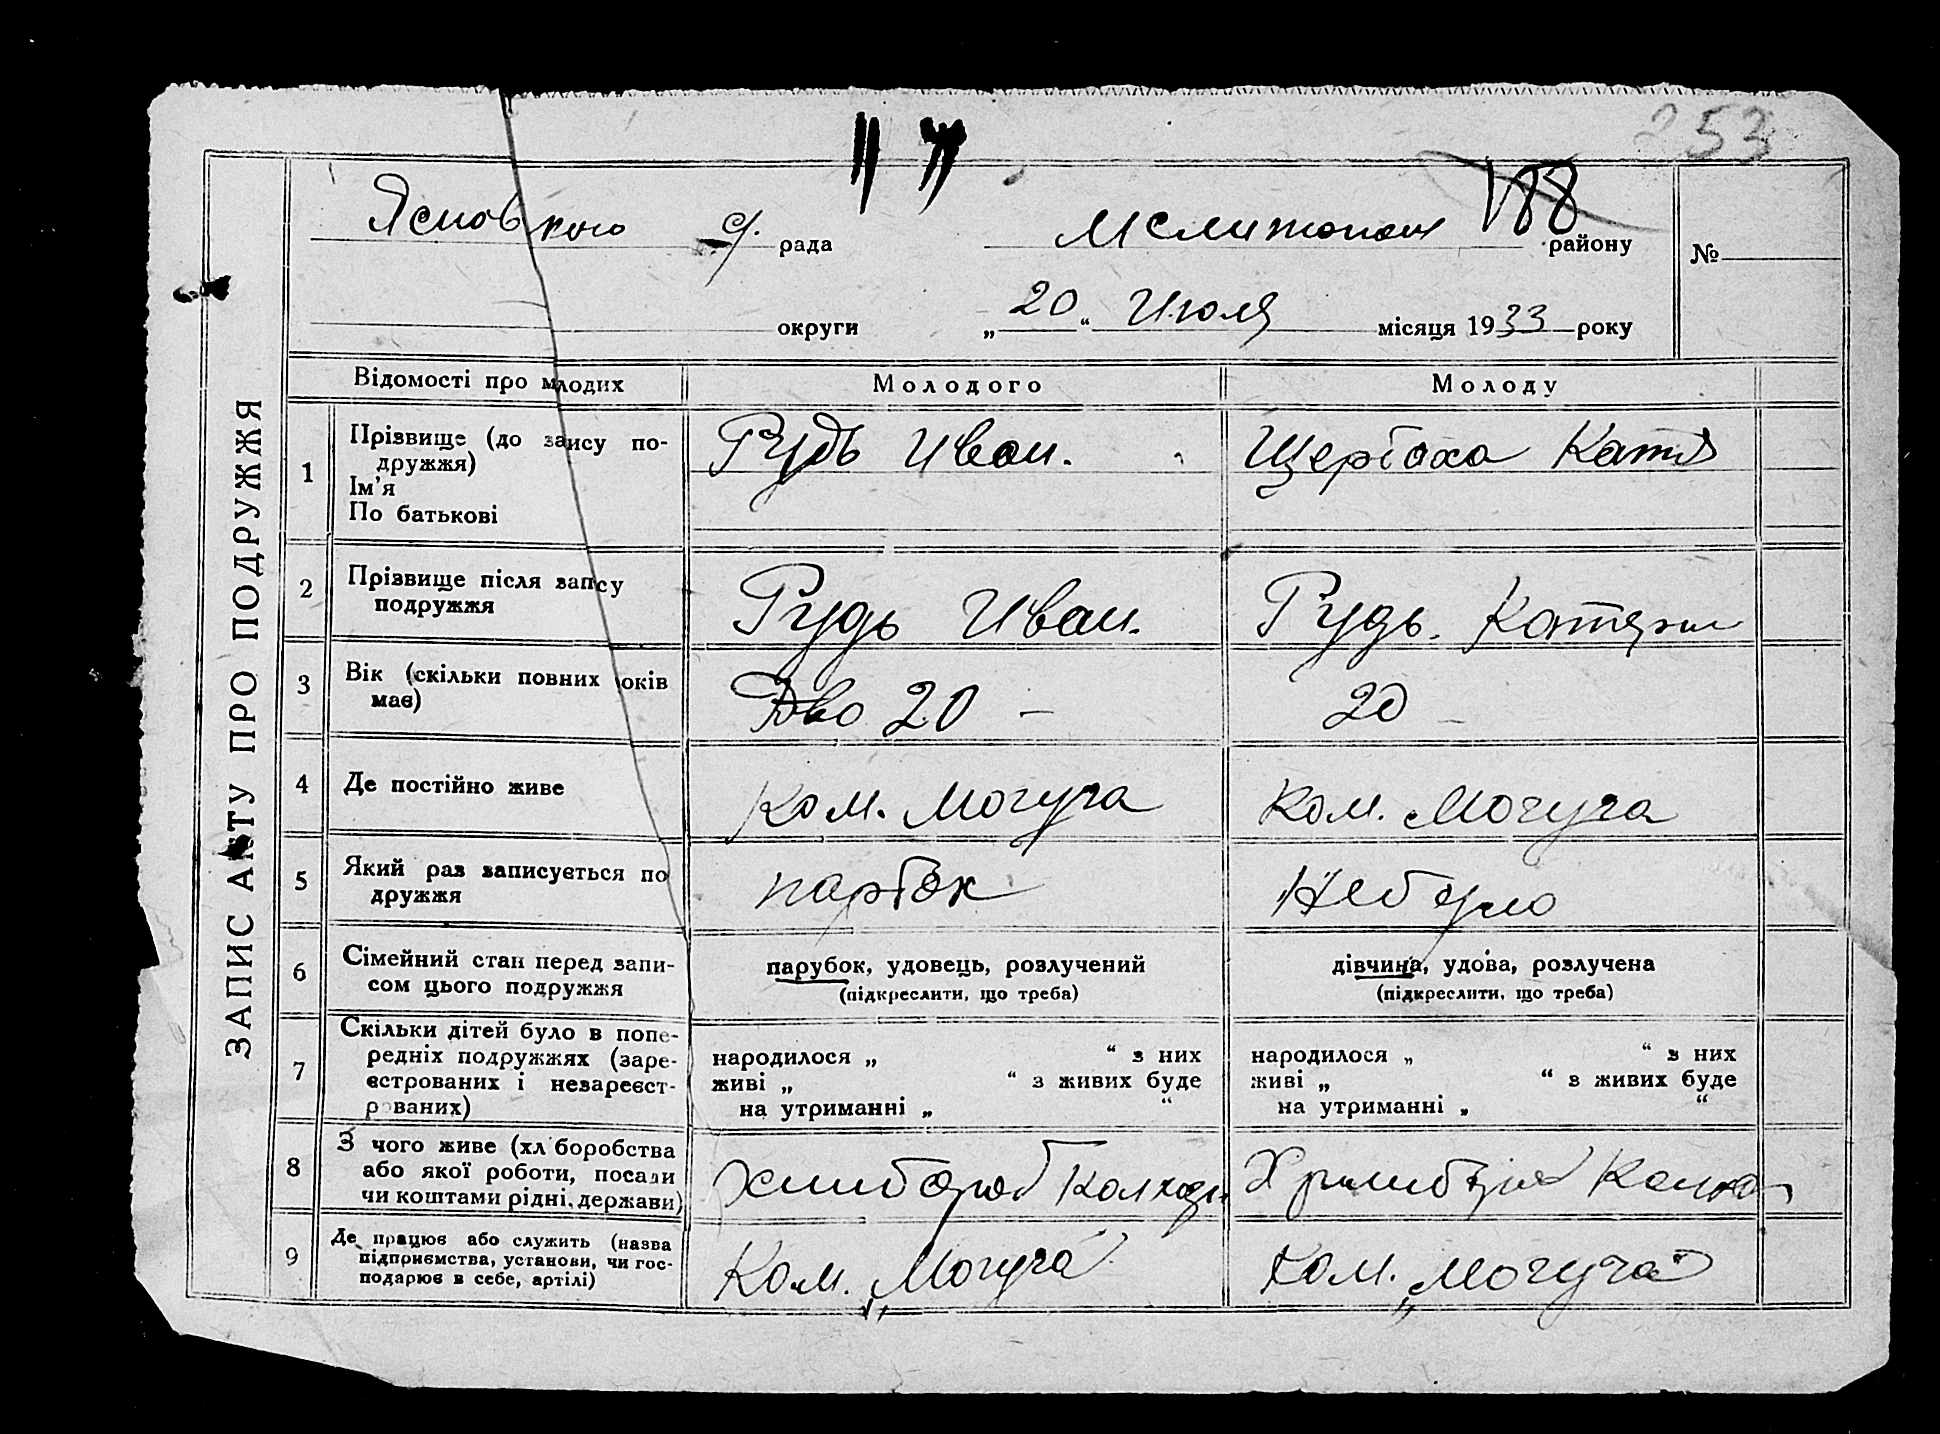 253
188
Ясновского с/. рада Мелитопол району №
округи „ 20 “ Июля місяця 1933 року
ЗАПИС АКТУ ПРО ПОДРУЖЖЯ
Відомості про молодих Молодого Молоду
1 Прізвище (до запису по-
дружжя)
Ім'я
По батькові
Рудь Иван. Щербаха Катя
2 Прізвище після запсу
подружжя
Рудь Иван. Рудь. Катерин
3 Вік (скільки повних років
має)
20 – 20 –
4 Де постійно живе Ком. Могуча Ком. Могуча
5 Який раз записується по
дружжя
парбок Небуло
6 Сімейний стан перед запи-
сом цього подружжя
парубок, удовець, розлучений
(підкреслити, що треба)
дівчина, удова, розлучена
(підкреслити, що треба)
7 Скільки дітей було в попе-
редніх подружжях (заре-
єстрованих і незареєст-
рованих)
народилося „ “ з них
живі „ “ з живих буде
на утриманні „ “
народилося „ “ з них
живі „ “ з живих буде
на утриманні „ “
8 З чого живе (хліборобства
або якої роботи, посади
чи коштами рідні, держави)
9 Де працює або служить (назва
підприємства, установи, чи гос-
подарює в себе, артілі)
Ком. „Могуча“ Ком. „Могуча“